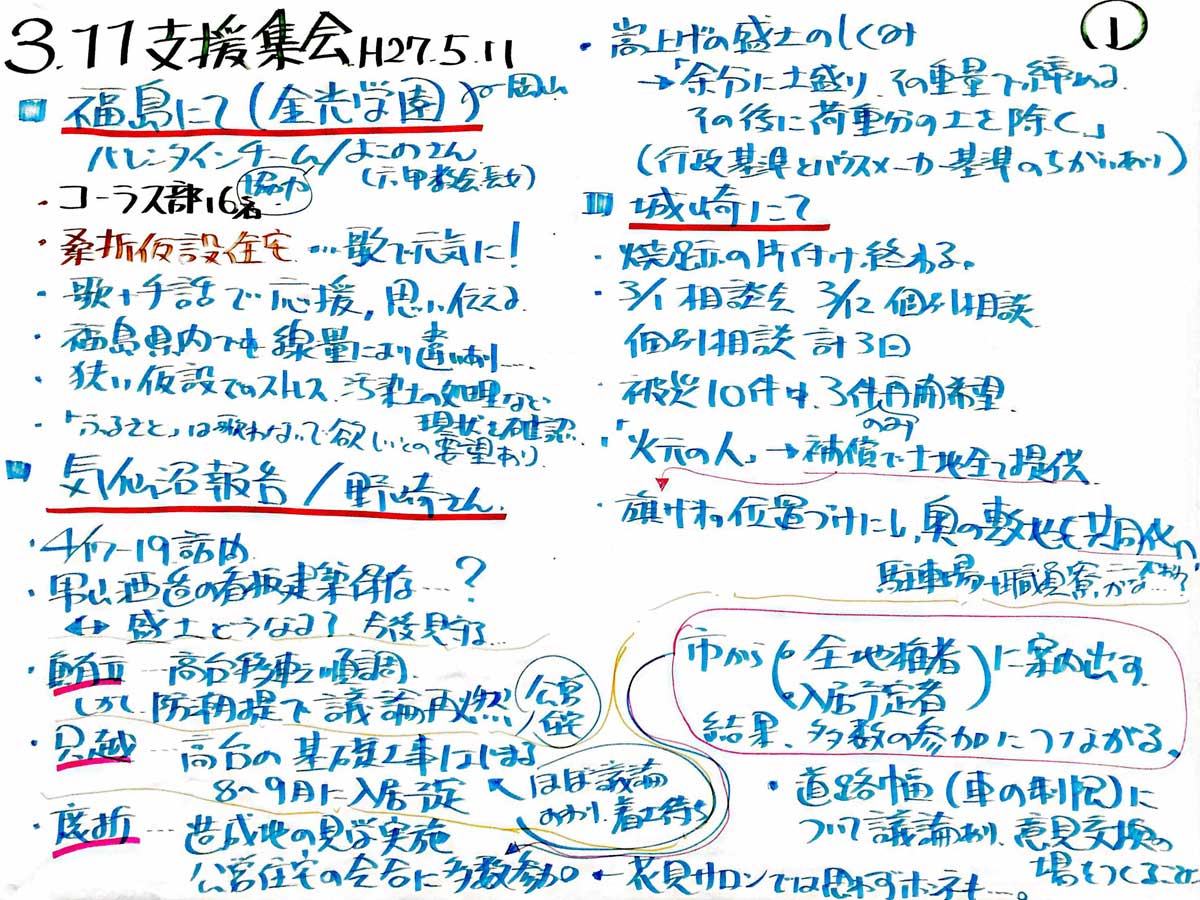 3.11支援集会 H27.5.11
①
福島にて(金光学園) 岡山
バレンタインチーム/よこのさん
(六甲教会長女)
・コーラス部16名 協力
・桑折仮設住宅…歌で元気に!
・歌+手話で応援,思い伝える
・福島県内でも線量により違いあり…
・狭い仮設でのストレス 汚染土の処理など
現状を確認
・「ふるさと」は歌わないで欲しいとの要望あり
気仙沼報告/野崎さん
・4/17-19詰め
・男山酒造の看板建築保存…?
↔盛土どうなる?今後見守る…
・鮪立…高台移転順調.
しかし防潮堤で議論再燃
公営住宅
・只越 高台の基礎工事はじまる
8〜9月に入居予定
ほぼ議論
おわり.着工待ち
・底折…造成地の見学実施
公営住宅の会合に多数参加。
←花見サロンでは思わずホンネも…。
・嵩上げの盛土のしくみ
→「余分に土盛り その重量で締める.
その後に荷重分の土を除く」
(行政基準とハウスメーカー基準のちがいあり)
城崎にて
・焼跡の片付け終わる。
・3/1相談会 3/12個別相談
個別相談 計3回
・被災10件中、3件再開希望
のみ
・「火元の人」→補償で土地全て提供
・旗竿の位置づけにし,奥の敷地を共同化
駐車場+職員寮かな…
市から(・全地権者 ・入居予定者)に案内出す
結果、多数の参加につながる。
・道路幅(車の制限)に
ついて議論あり.意見交換の
場をつくること